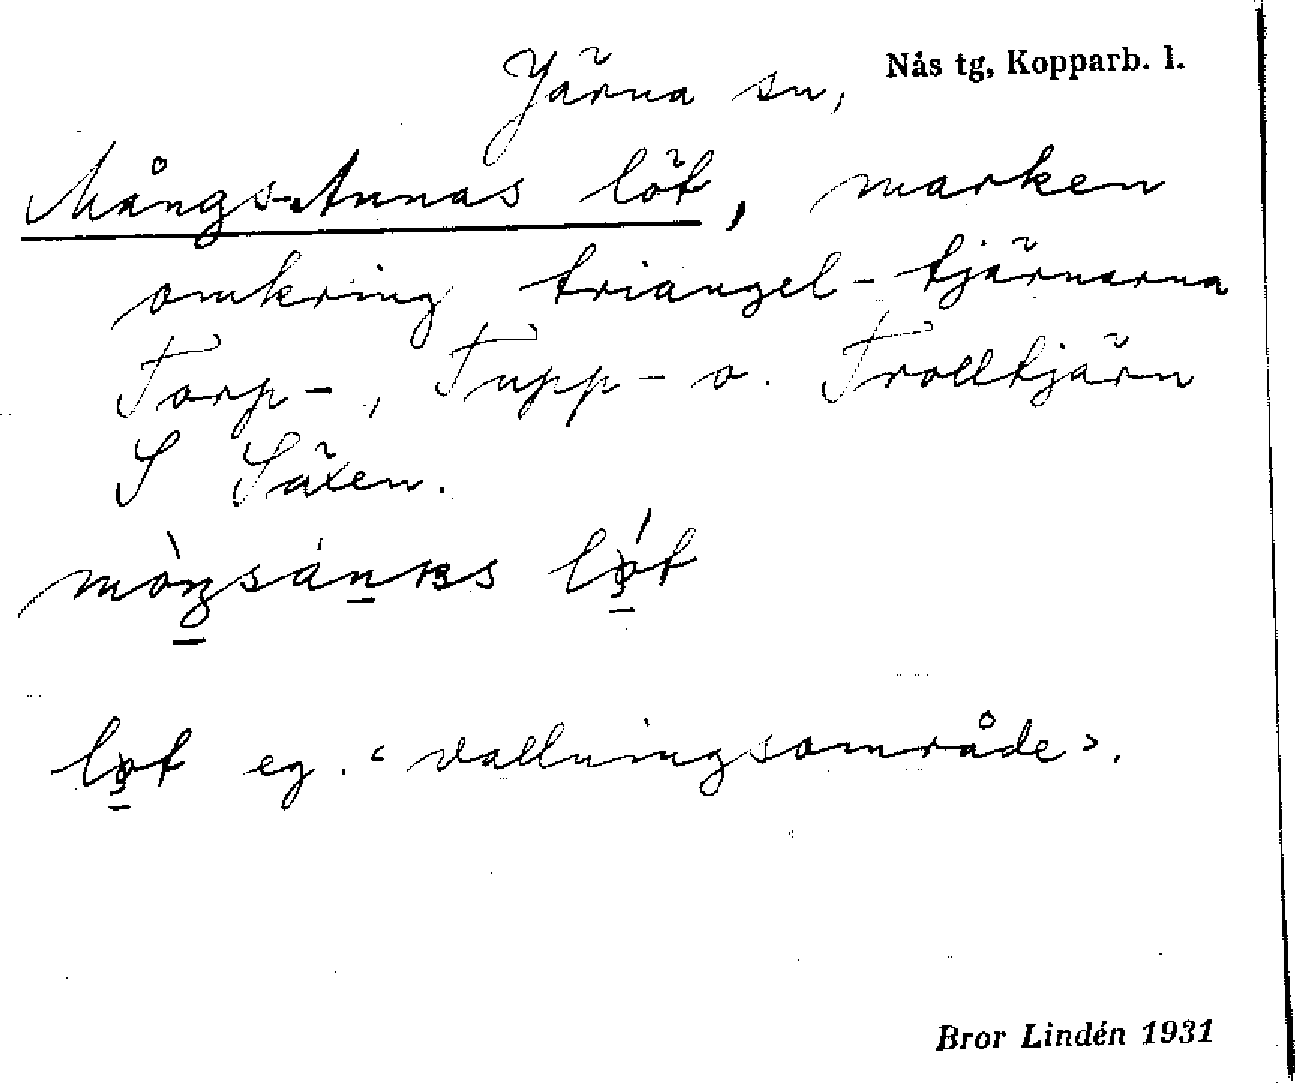 Järna sn, Nås tg, Kopparb. l.
Mångs-Annas löt, marken
omkring triangel-tjärnarna
Torp-, Tupp- o. Trolltjärn
S Säxen.
eg. ‹vallningsområde›.
Bror Lindén 1931